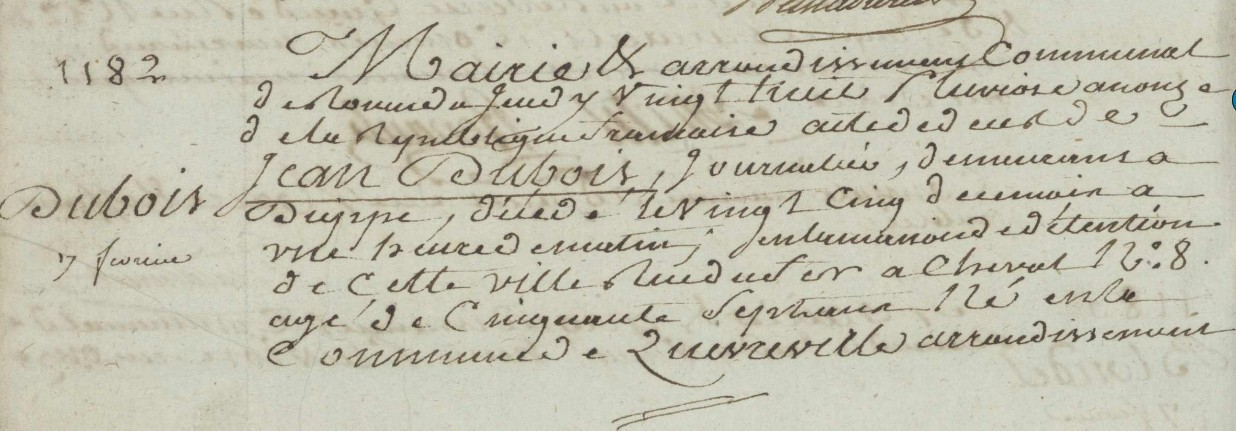 1182
Mairie & arrondissement Communal
de Rouen du Jeudy vingt huit Pluviose an onze
de la Republique francaise acte de deces de
Jean Dubois, Journalier, demeurant a
Dubois
Dieppe, décédé le vingt Cinq de ce mois a
une heure du matin, en la maison de détention
7 fevrier
de Cette ville Rue du fer a Cheval N.º 8.
agé de Cinquante Sept ans Né en la
Commune de Quevreville arrondissement